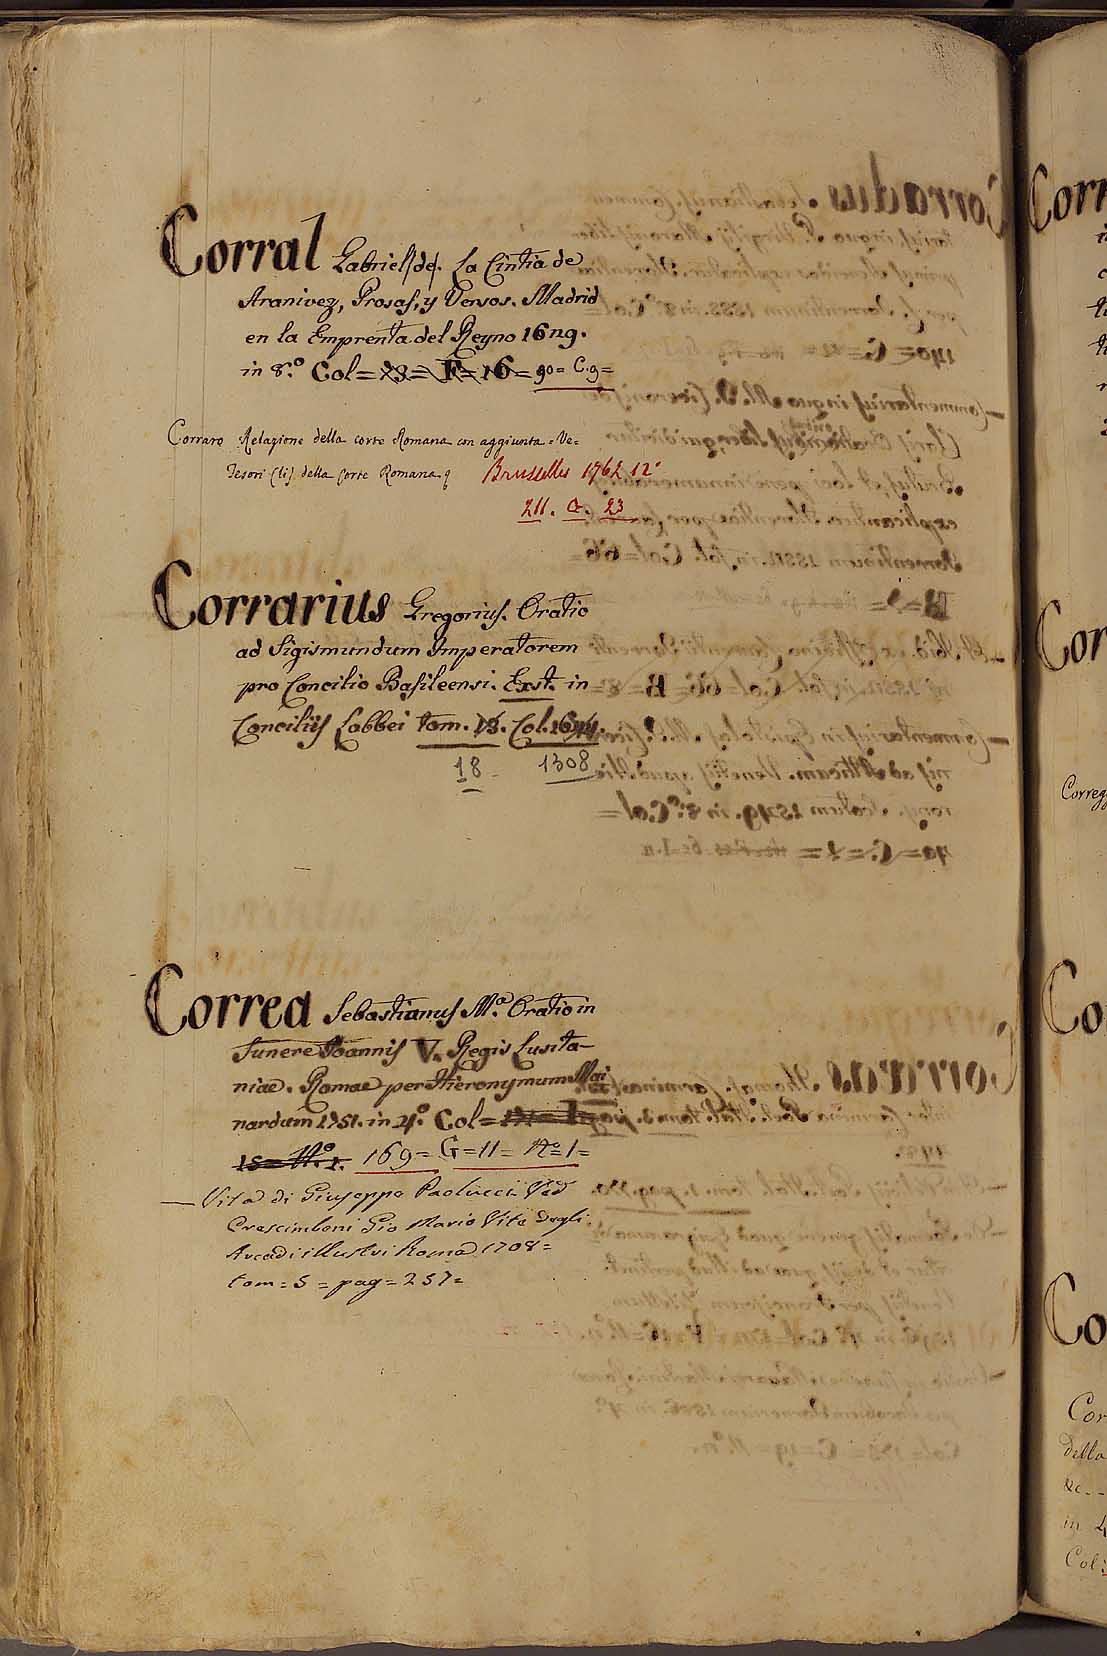 Corral Gabriel de. La Cintia de
Aranivez, Prosas, y Versos. Madrid
en la Emprenta del Reyno 16ng.
in 8.º Col= 23= F= 16= 90= C.9=
Corraro Relazione della corte Romana con aggiunta = Ve=
Tesori (li) della Corte Romana.
Brusselles 1762 12º
211. a. 23
Corrarius Gregorius. Oratio
ad Sigismundum Imperatorem
pro Concilio Basileensi. Ext. in
Conciliis Labbei tom. 13. Col. 1644.
18 1308
Correa Sebastianus Mª. Oratio in
Funere Ioannis V. Regis Lusita-
niae. Romae per Hieronymum Mai
nardum 1751. in 4º. Col=
15= Nº. 1. 169= G=11= Nº=1=
— Vita di Giuseppe Paolucci Ved
Crescimbeni Gio Mario Vite degli
Arcadi illustri Roma 1708=
tom=5= pag=257=
Corr
Cor
Correg
Co
Co
Cor
della
&c--
in 4
Col: